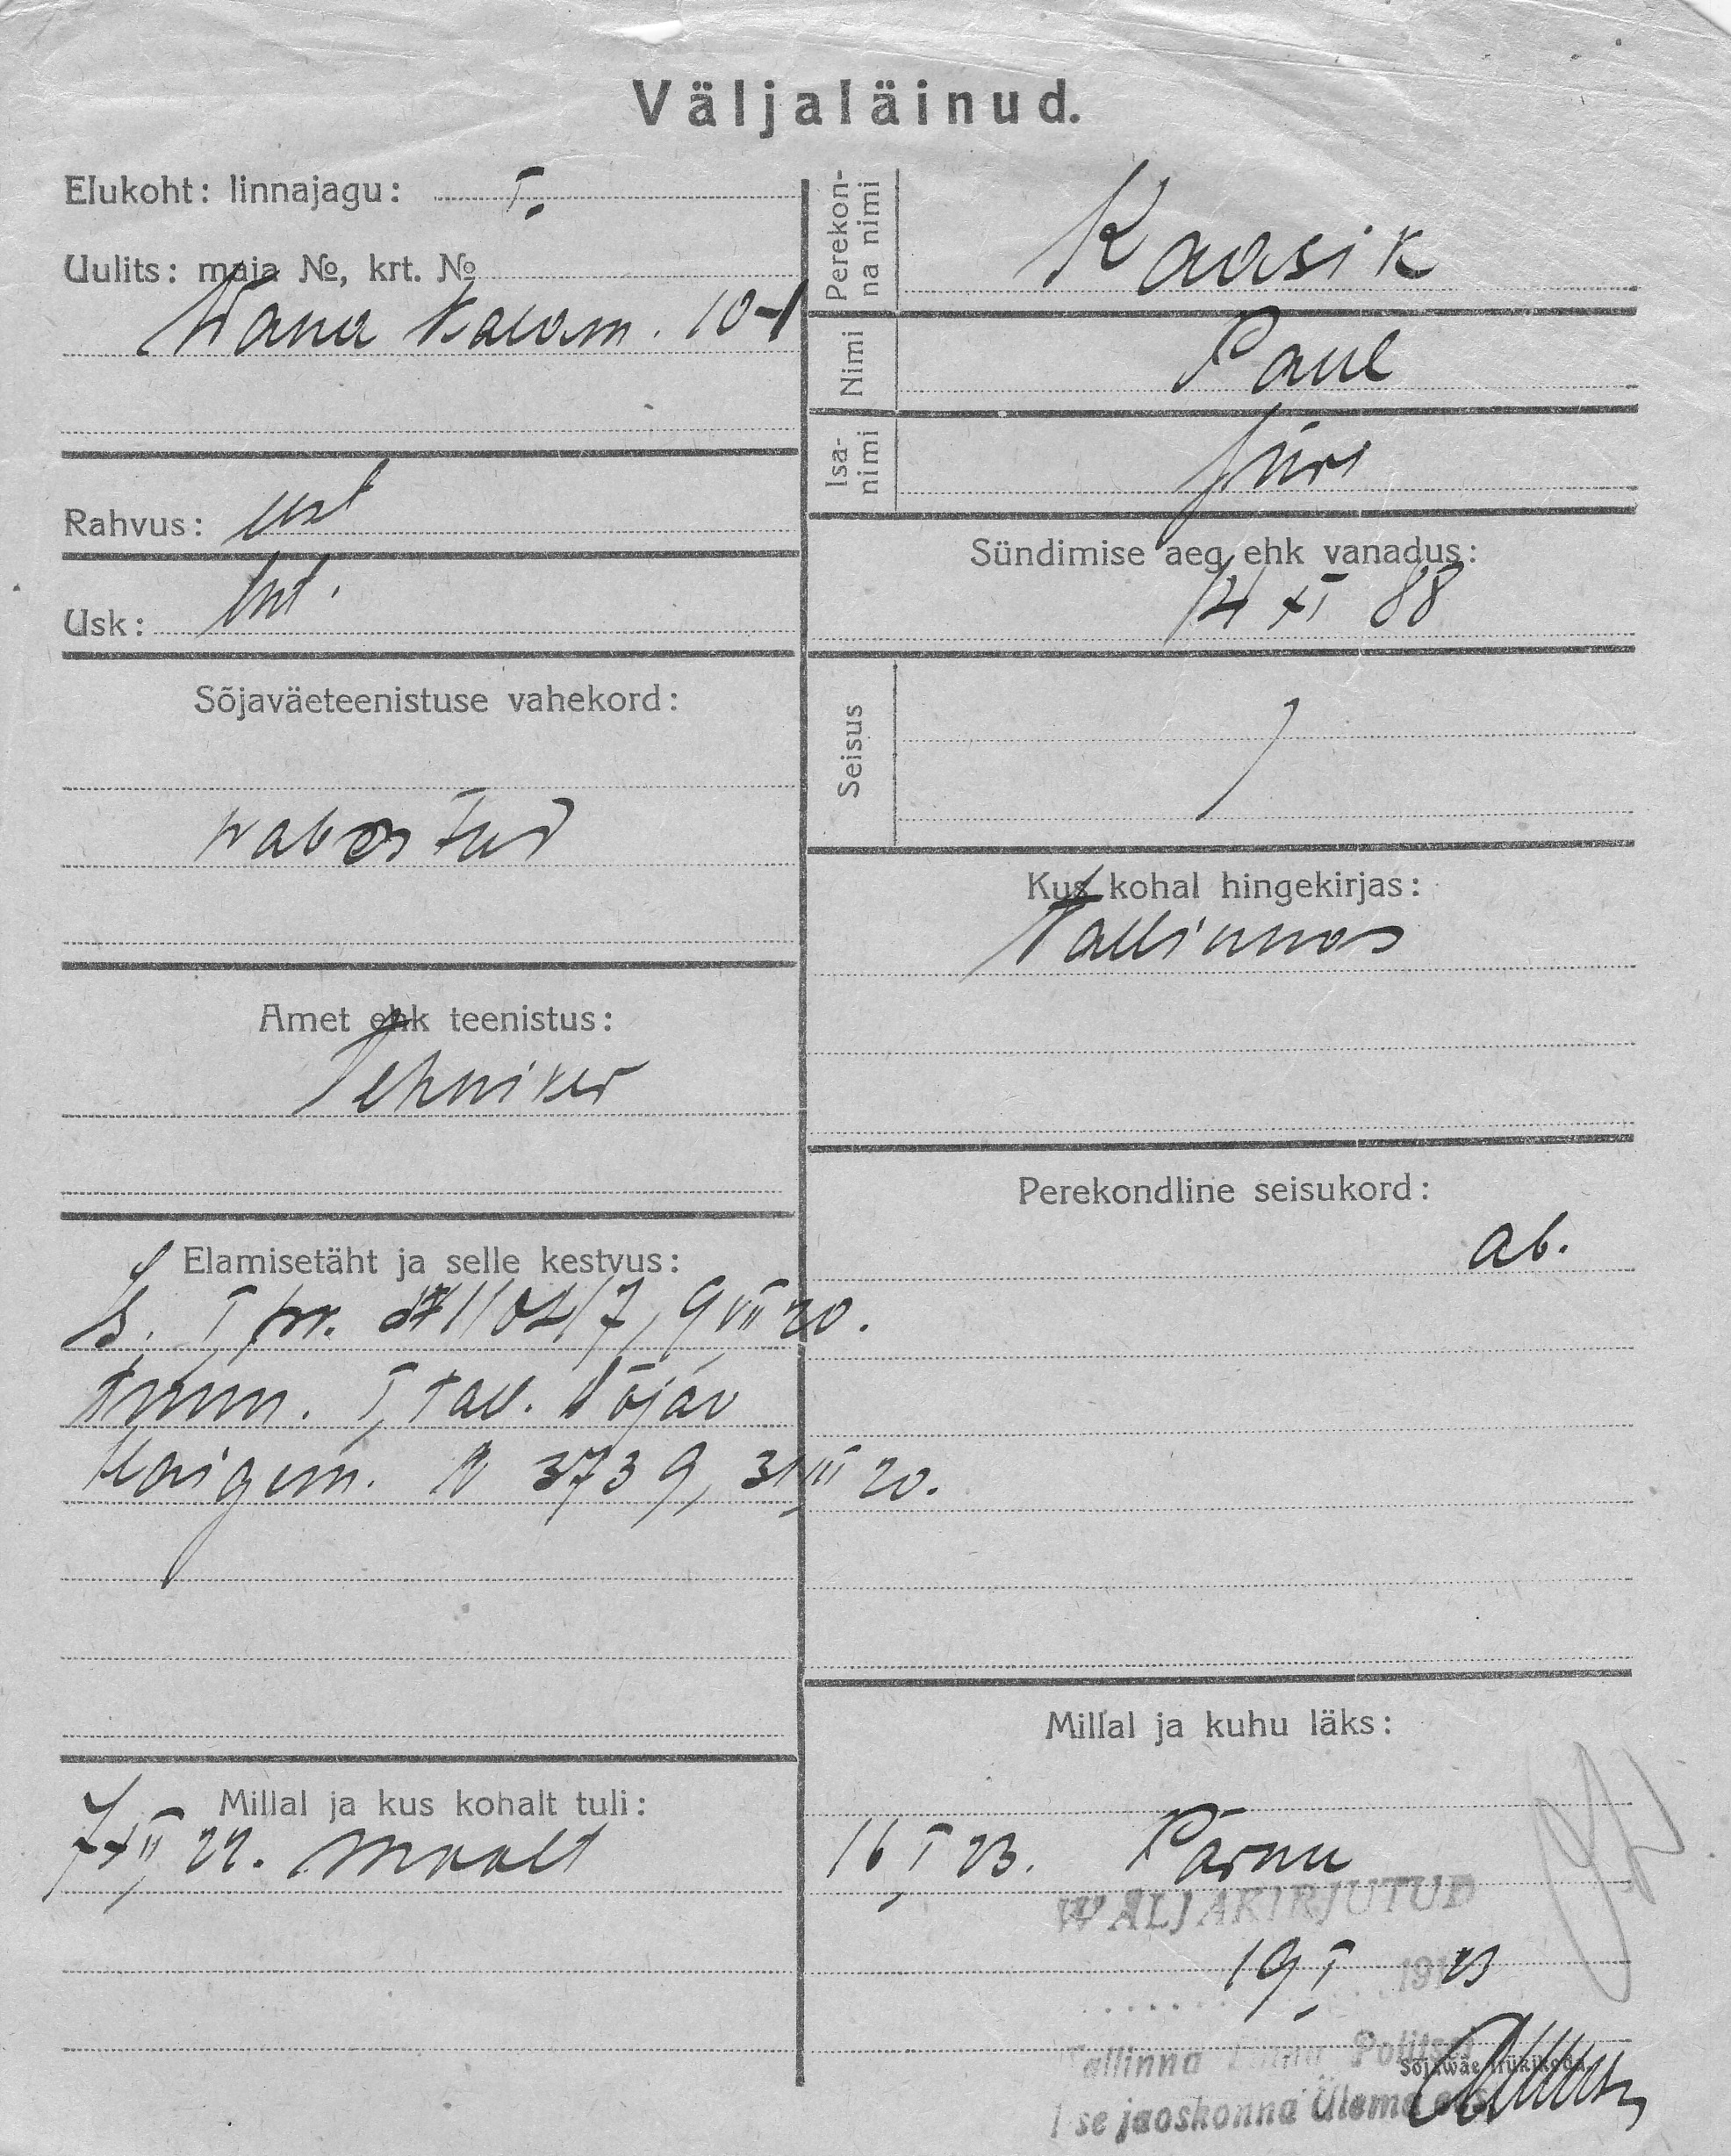 Väljaläinud.
Elukoht: linnajagu: I.
Uulits: maja №, krt. №
Wana Kalam. 10-1
Rahvus: est
Usk: lut.
Sõjaväeteenistuse vahekord:
wabastud
Amet ehk teenistus:
Tehniker
Elamisetäht ja selle kestvus:
I jsk. 9 VII 20.
tunn. Tall. Sõjav
Haigem. N 3739, 31 III 20.
Millal ja kus kohalt tuli:
7 XII 22. maalt
Perekonna nimi
Kaasik
Nimi
Paul
Isanimi
Jüri
Sündimise aeg ehk vanadus:
14 XI 88
Seisus
Kus kohal hingekirjas:
Tallinnas
Perekondline seisukord:
ab.
Millal ja kuhu läks:
16 I 23. Pärnu
WÄLJAKIRJUTUD
19 I 191 23
Tallinna Linna Politsei
Sõjawäe trükikoda
I se jaoskonna Ülema eest